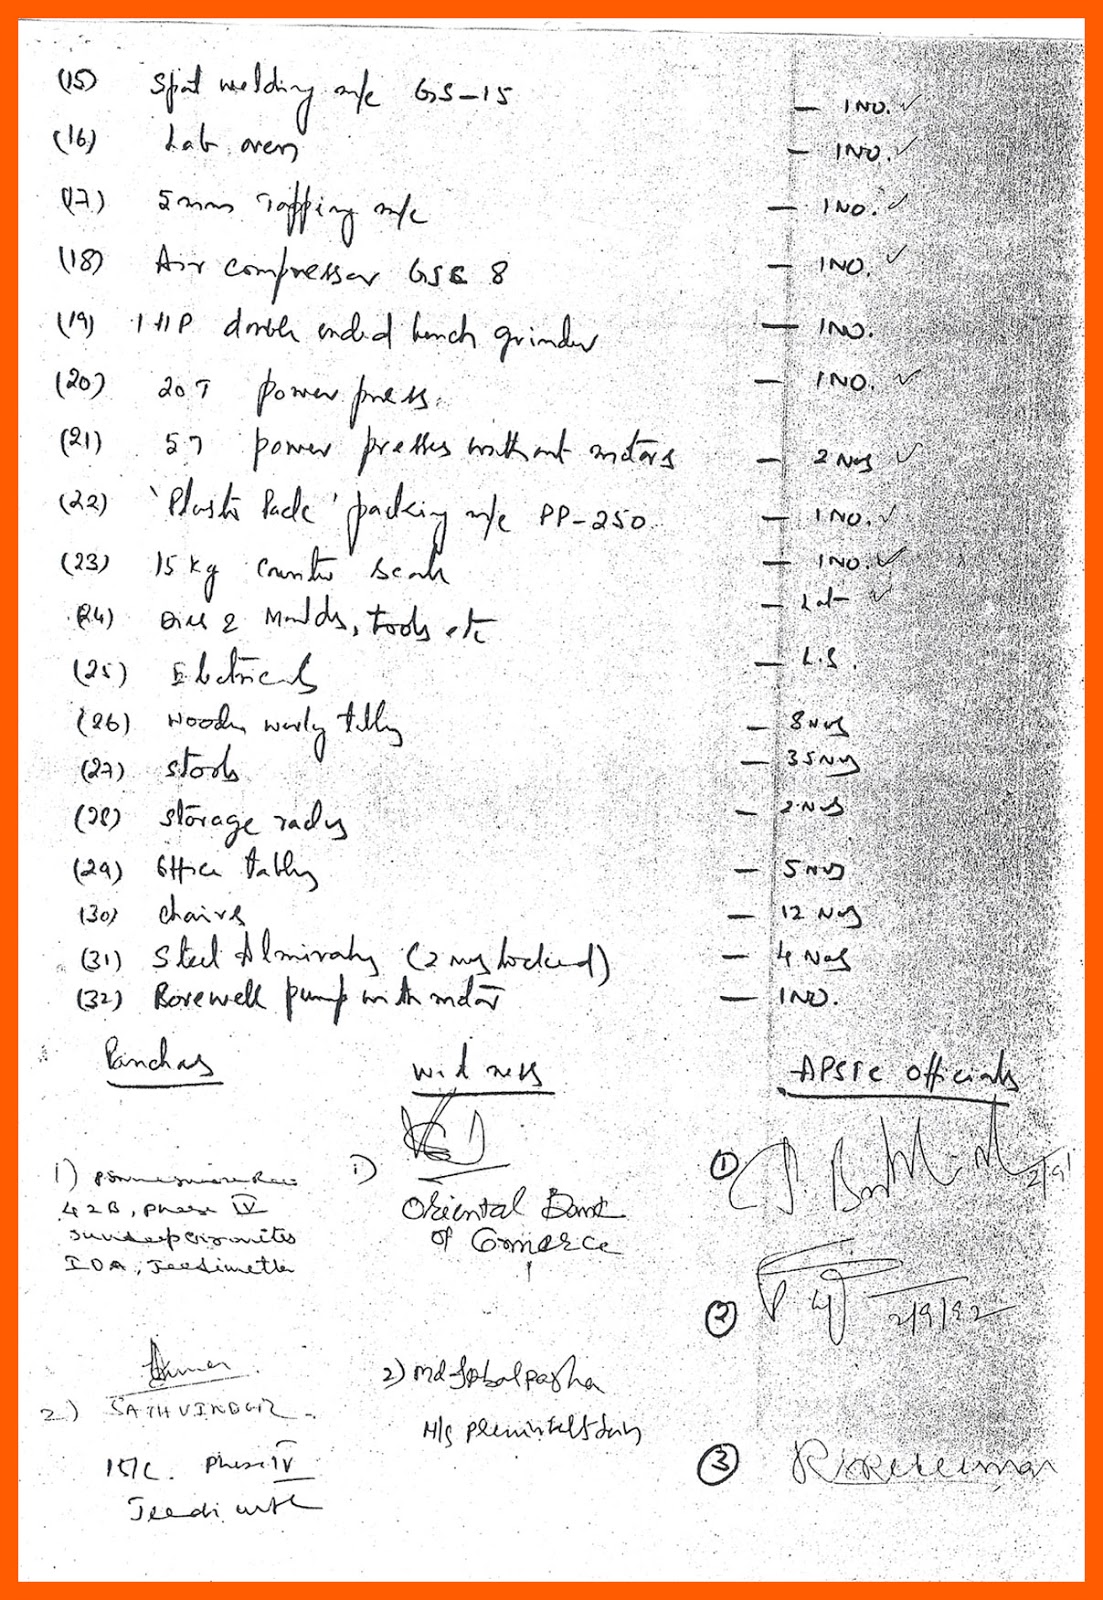 (15) Spot welding m/c GS-15 - 1NO. ✓
(16) Lab oven - 1NO. ✓
(17) 5mm Tapping m/c - 1NO. ✓
(18) Air compressor GSC 8 - 1NO. ✓
(19) 1 HP double ended bench grinder - 1NO.
(20) 20T power press. - 1NO. ✓
(21) 5T power presses without motors - 2 Nos ✓
(22) 'Plasto Pack' packing m/c PP-250 - 1NO. ✓
(23) 15 kg counter scale - 1NO. ✓
(24) Dies & Moulds, tools etc - Lot ✓
(25) Electricals - L.S.
(26) Wooden working tables - 8 Nos
(27) stools - 35 Nos
(28) storage racks - 2 Nos
(29) Office tables - 5 Nos
(30) chairs - 12 Nos
(31) Steel Almirahs (2 nos locked) - 4 Nos
(32) Borewell pump with motor - 1NO.
Panchas witness APSFC Officials
1) 1) ①
42B, Phase IV Oriental Bank
of Commerce
IDA, Jeedimetla
② 2/9/92
2) SATHVINDER 2) Md Iqbal pasha
M/s
Phase IV ③
Jeedimetla